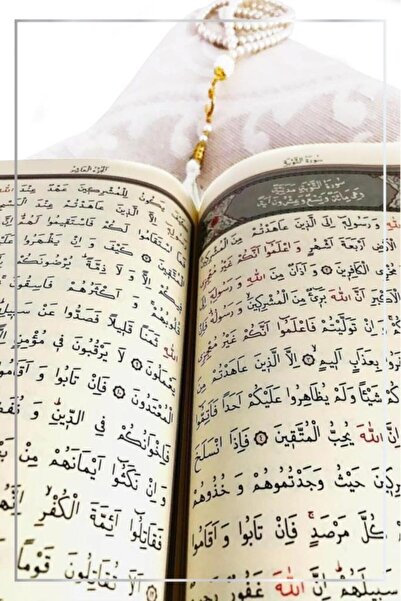 سُورَةُ التَّوْبَةِ
سُورَةُ التَّوْبَةِ مَدَنِيَّةٌ
اللهِ وَ رَسُولِهِ إِلَى الَّذِينَ عَاهَدْتُمْ مِنَ الْمُشْرِكِينَ
أَرْبَعَةَ أَشْهُرٍ وَ اعْلَمُوا أَنَّكُمْ غَيْرُ مُعْجِزِي
مُخْزِي الْكَافِرِينَ ﴿٢﴾ وَ أَذَانٌ مِنَ اللهِ وَ رَسُولِهِ إِلَى
الْأَكْبَرِ أَنَّ اللهَ بَرِيءٌ مِنَ الْمُشْرِكِينَ وَ رَسُولُهُ فَإِنْ
وَ إِنْ تَوَلَّيْتُمْ فَاعْلَمُوا أَنَّكُمْ غَيْرُ مُعْجِزِي
بِعَذَابٍ أَلِيمٍ ﴿٣﴾ إِلَّا الَّذِينَ عَاهَدْتُمْ مِنَ
شَيْئًا وَلَمْ يُظَاهِرُوا عَلَيْكُمْ أَحَدًا فَأَتِمُّوا
إِنَّ اللهَ يُحِبُّ الْمُتَّقِينَ ﴿٤﴾ فَإِذَا انْسَلَخَ
حَيْثُ وَجَدْتُمُوهُمْ وَ خُذُوهُمْ
كُلَّ مَرْصَدٍ فَإِنْ تَابُوا وَ أَقَامُوا
سَبِيلَهُمْ إِنَّ اللهَ غَفُورٌ رَحِيمٌ
الْجُزْءُ الْعَاشِرُ
كَيْفَ يَكُونُ لِلْمُشْرِكِينَ عَهْدٌ عِنْدَ اللهِ
رَسُولِهِ إِلَّا الَّذِينَ عَاهَدْتُمْ عِنْدَ الْمَسْجِدِ
فَمَا اسْتَقَامُوا لَكُمْ فَاسْتَقِيمُوا لَهُمْ إِنَّ
الْمُتَّقِينَ ﴿٧﴾ كَيْفَ وَ إِنْ يَظْهَرُوا عَلَيْكُمْ
فِيكُمْ إِلًّا وَ لَا ذِمَّةً يُرْضُونَكُمْ
قُلُوبُهُمْ وَ أَكْثَرُهُمْ فَاسِقُونَ
اللهِ ثَمَنًا قَلِيلًا فَصَدُّوا عَنْ سَبِيلِهِ
يَعْمَلُونَ ﴿٩﴾ لَا يَرْقُبُونَ فِي مُؤْمِنٍ
الْمُعْتَدُونَ ﴿١٠﴾ فَإِنْ تَابُوا وَ أَقَامُوا
فَإِخْوَانُكُمْ فِي الدِّينِ وَ نُفَصِّلُ
وَ إِنْ نَكَثُوا أَيْمَانَهُمْ مِنْ بَعْدِ
فَقَاتِلُوا أَئِمَّةَ الْكُفْرِ إِنَّهُمْ
أَلَا تُقَاتِلُونَ قَوْمًا